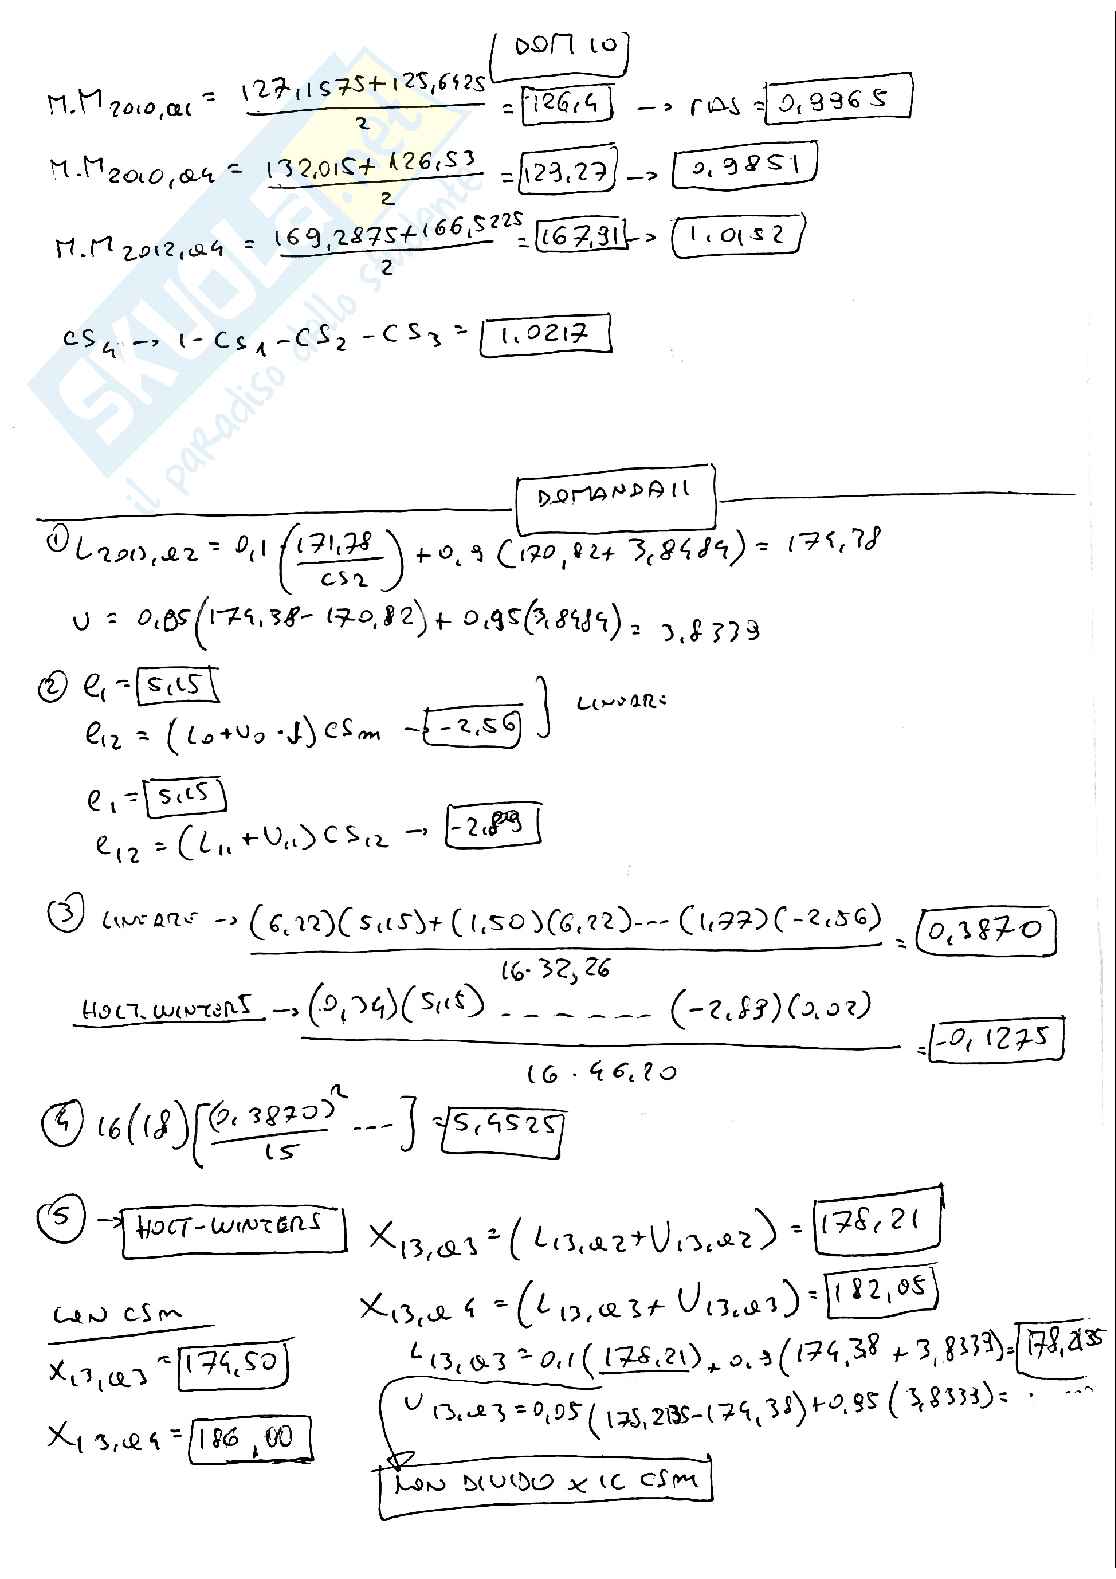 DOM 10
M.M2010,Q1 = (127,1575 + 125,6425) / 2 = 126,4 → RDS = 0,9965
M.M2010,Q4 = (132,015 + 126,53) / 2 = 129,27 → 0,9851
M.M2012,Q4 = (169,2875 + 166,5225) / 2 = 167,91 → 1,0152
CS4 → 1 - CS1 - CS2 - CS3 = 1,0217
SKUOLA.net
il paradiso dello studente
DOMANDA 11
① L2013,Q2 = 0,1 (171,78 / CS2) + 0,9 (170,82 + 3,8484) = 174,38
U = 0,05 (174,38 - 170,82) + 0,95 (3,8484) = 3,8339
② e1 = 5,15
e12 = (L0 + U0 · J) CSm → -2,56 } LINEARE
e1 = 5,15
e12 = (L11 + U11) CS12 → -2,89
③ LINEARE → (6,22)(5,15) + (1,50)(6,22) --- (1,77)(-2,56) / 16 · 32,26 = 0,3870
HOLT-WINTERS → (0,34)(5,15) ------ (-2,89)(0,02) / 16 · 46,20 = -0,1275
④ 16(18) [(0,3870)² / 15 ---] = 5,4525
⑤ → HOLT-WINTERS X13,Q3 = (L13,Q2 + U13,Q2) = 178,21
X13,Q4 = (L13,Q3 + U13,Q3) = 182,05
CON CSM
L13,Q3 = 0,1 (178,21) + 0,9 (174,38 + 3,8339) = 178,2135
X13,Q3 = 174,50
U13,Q3 = 0,05 (178,2135 - 174,38) + 0,95 (3,8339) = . ...
X13,Q4 = 186,00
NON DIVIDO x IL CSM